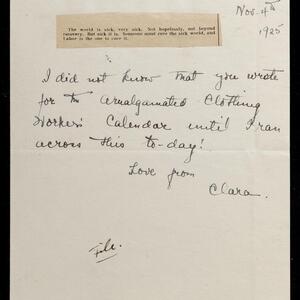 Nov. 4th
1925
The world is sick, very sick. Not hopelessly, not beyond
recovery. But sick it is. Someone must cure the sick world, and
Labor is the one to cure it.
I did not know that you wrote
for the Amalgamated Clothing
Workers' Calendar until I ran
across this to-day!
Love from
Clara.
File.